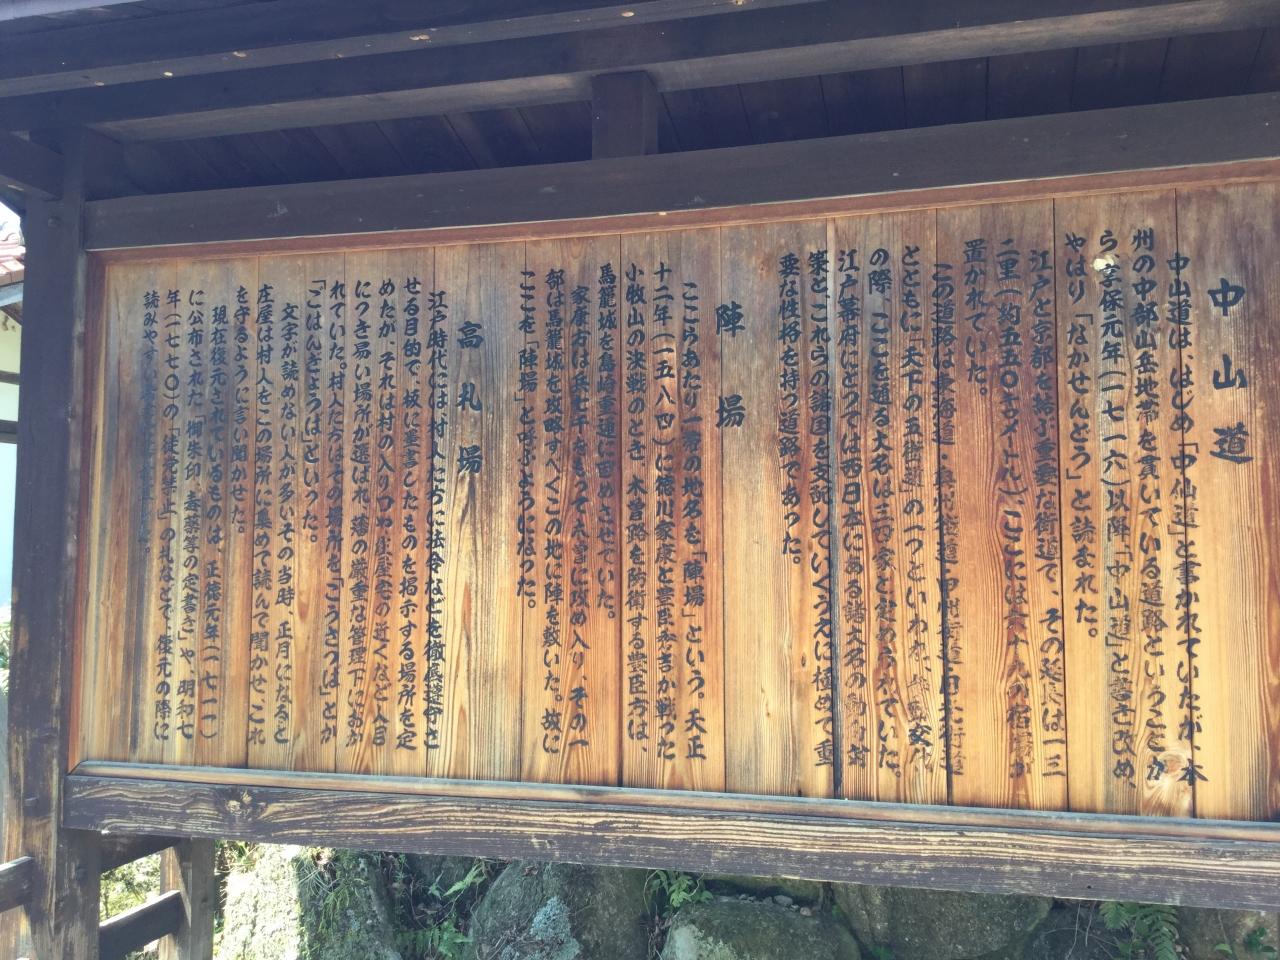 中山道
中山道は、はじめ「中仙道」と書かれていたが、本
州の中部山岳地帯を貫いている道路ということか
ら、享保元年(一七一六)以降「中山道」と書き改め、
やはり「なかせんどう」と読まれた。
江戸と京都を結ぶ重要な街道で、その延長は一三
二里(約五五〇キロメートル)ここには六十九の宿場が
置かれていた。
この道路は東海道・奥州街道・甲州街道・日光街道
とともに「天下の五街道」の一つといわれ、
の際、ここを通る大名は三四家と定められていた。
江戸幕府にとっては西日本にある諸大名の動向対
策と、これらの諸国を支配していくうえに極めて重
要な性格を持つ道路であった。
陣場
ここらあたり一帯の地名を「陣場」という。天正
十二年(一五八四)に徳川家康と豊臣秀吉が戦った
小牧山の決戦のとき、木曽路を防衛する豊臣方は、
馬籠城を島崎重通に固めさせていた。
家康方は兵七千をもって木曽に攻め入り、その一
部は馬籠城を攻略すべくこの地に陣を敷いた。故に
ここを「陣場」と呼ぶようになった。
高札場
江戸時代には、村人たちに法令などを徹底遵守さ
せる目的で、板に墨書したものを掲示する場所を定
めたが、それは村の入りつめ庄屋宅の近くなど人目
につき易い場所が選ばれ、藩の厳重な管理下におか
れていた。村人たちはその場所を「こうさつば」とか
「ごはんぎょうば」といった。
文字が読めない人が多いその当時、正月になると
庄屋は村人をこの場所に集めて読んで聞かせ、これ
を守るように言い聞かせた。
現在復元されているものは、正徳元年(一七一一)
に公布された「御朱印・毒薬等の定書き」や、明和七
年(一七七〇)の「徒党禁止」の札などで、復元の際に
読みやす